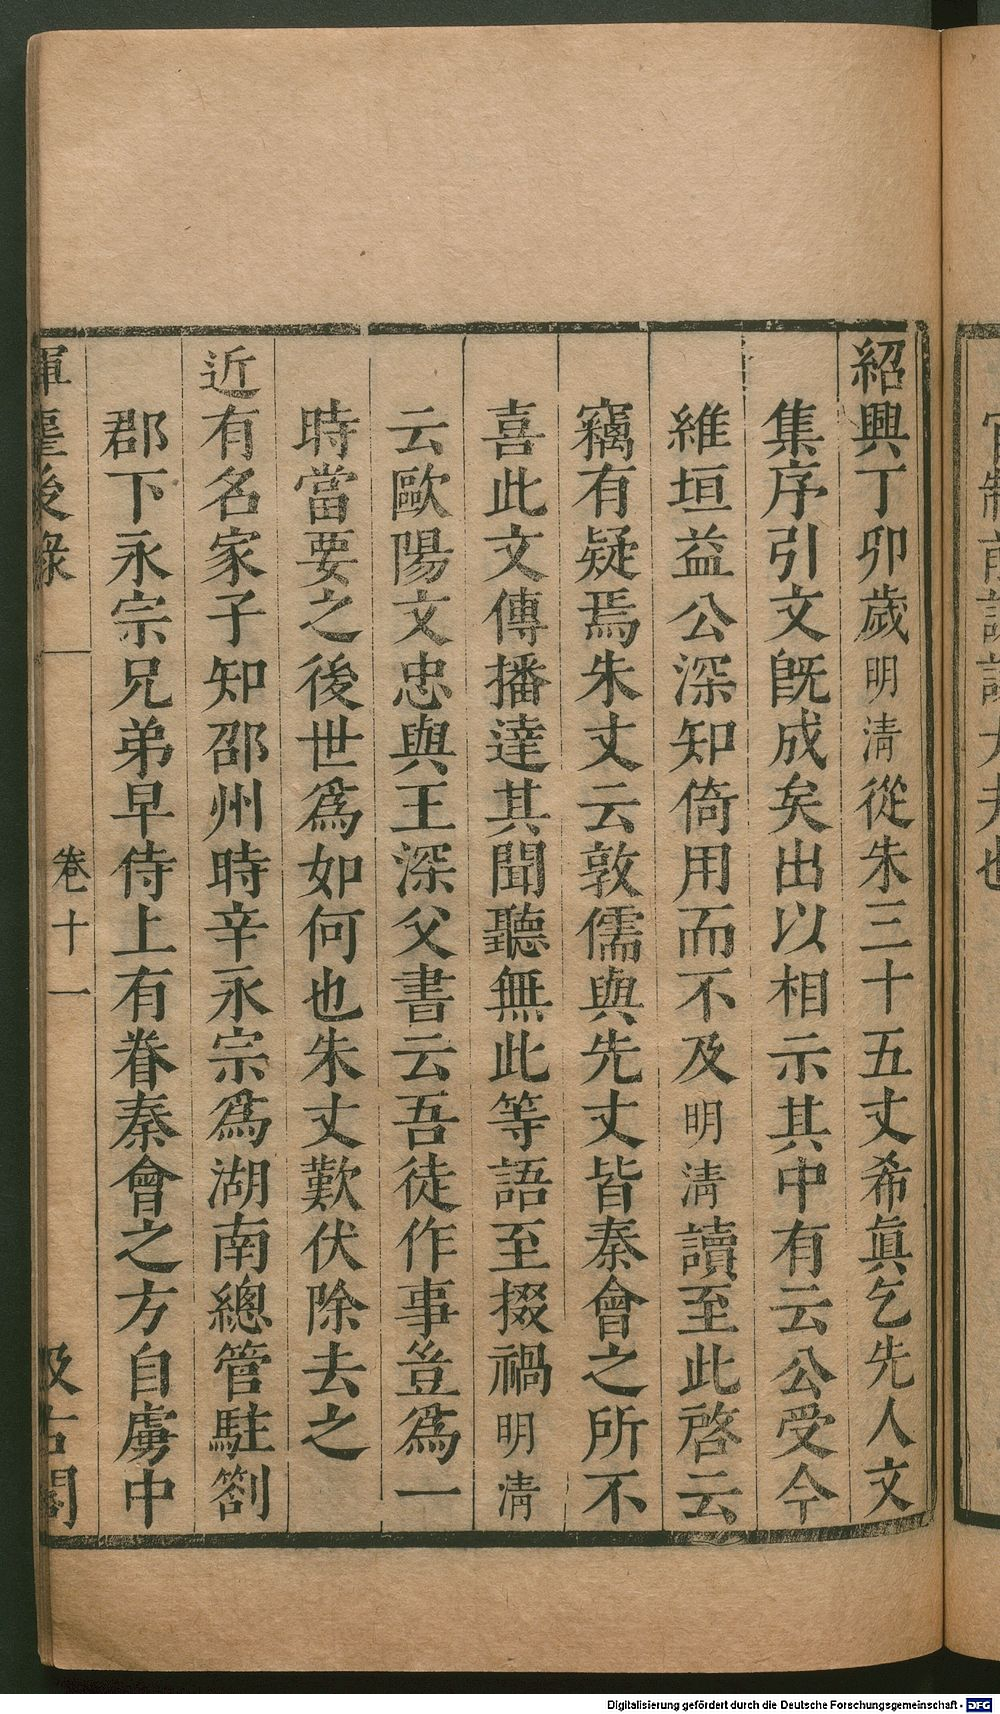 紹興丁卯歲明淸從朱三十五丈希眞乞先人文
集序引文旣成矣出以相示其中有云公受今
維垣益公深知倚用而不及明淸讀至此啓云
竊有疑焉朱丈云敦儒與先丈皆秦會之所不
喜此文傳播達其聞聽無此等語至掇禍明淸
云歐陽文忠與王深父書云吾徒作事豈爲一
時當要之後世爲如何也朱丈歎伏除去之
近有名家子知邵州時辛永宗爲湖南總管駐劄
郡下永宗兄弟早侍上有眷秦會之方自虜中
揮麈後錄
卷十一
汲古閣
Digitalisierung gefördert durch die Deutsche Forschungsgemeinschaft - DFG